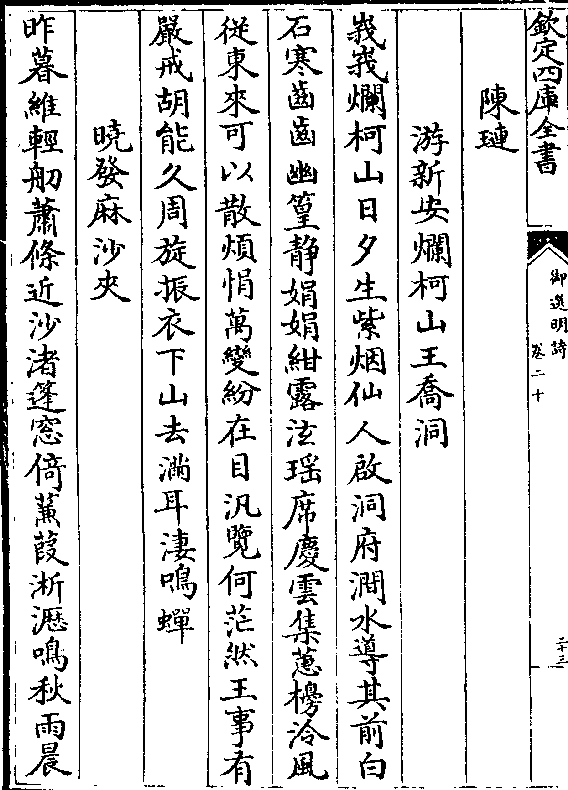 欽定四庫全書
御選明詩
卷二十
二十三
陳璉
游新安爛柯山王喬洞
峩峩爛柯山日夕生紫烟仙人啟洞府澗水導其前白
石寒齒齒幽篁静娟娟紺露泫瑶席慶雲集蕙櫋泠風
從東來可以散煩悁萬變紛在目汎覽何茫然王事有
嚴戒胡能久周旋振衣下山去滿耳淒鳴蟬
曉發麻沙夾
昨暮維輕舠蕭條近沙渚蓬窓倚蒹葭淅瀝鳴秋雨晨